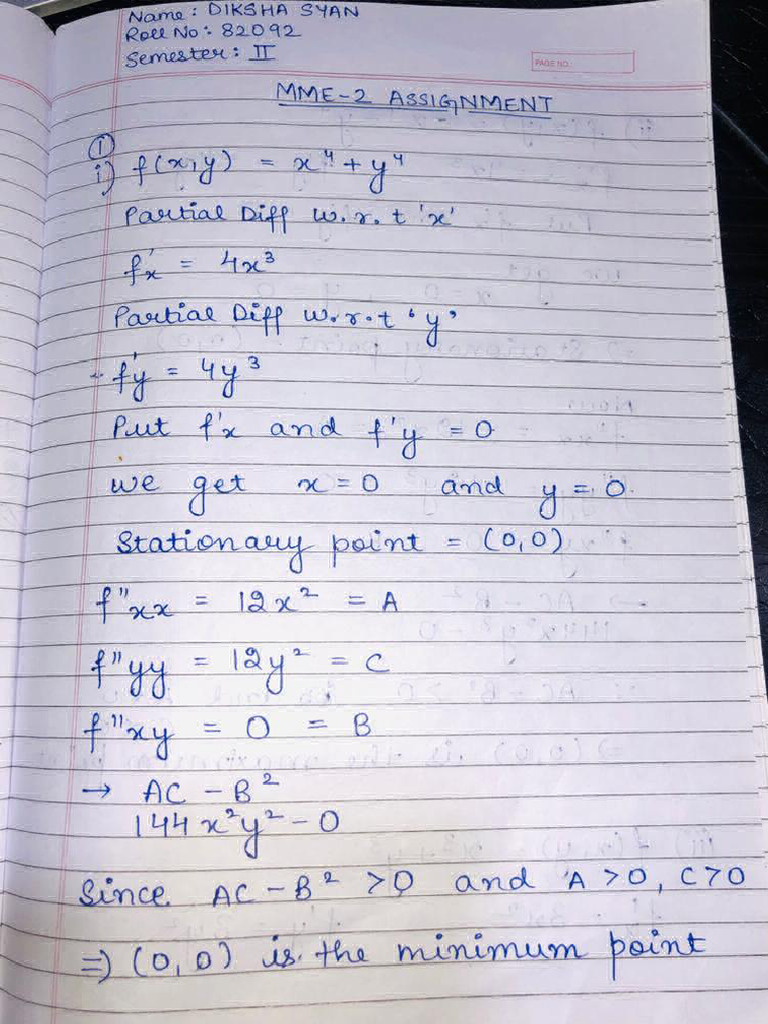 Name: DIKSHA SYAN
Roll No: 82092
Semester: II
PAGE NO.
MME-2 ASSIGNMENT
①
i) f(x,y) = x⁴ + y⁴
Partial Diff w.r.t 'x'
f'x = 4x³
Partial Diff w.r.t 'y'
f'y = 4y³
Put f'x and f'y = 0
we get x = 0 and y = 0.
Stationary point = (0,0)
f"xx = 12x² = A
f"yy = 12y² = C
f"xy = 0 = B
→ AC - B²
144x²y² - 0
Since. AC - B² >0 and A >0, C>0
⇒ (0,0) is the minimum point